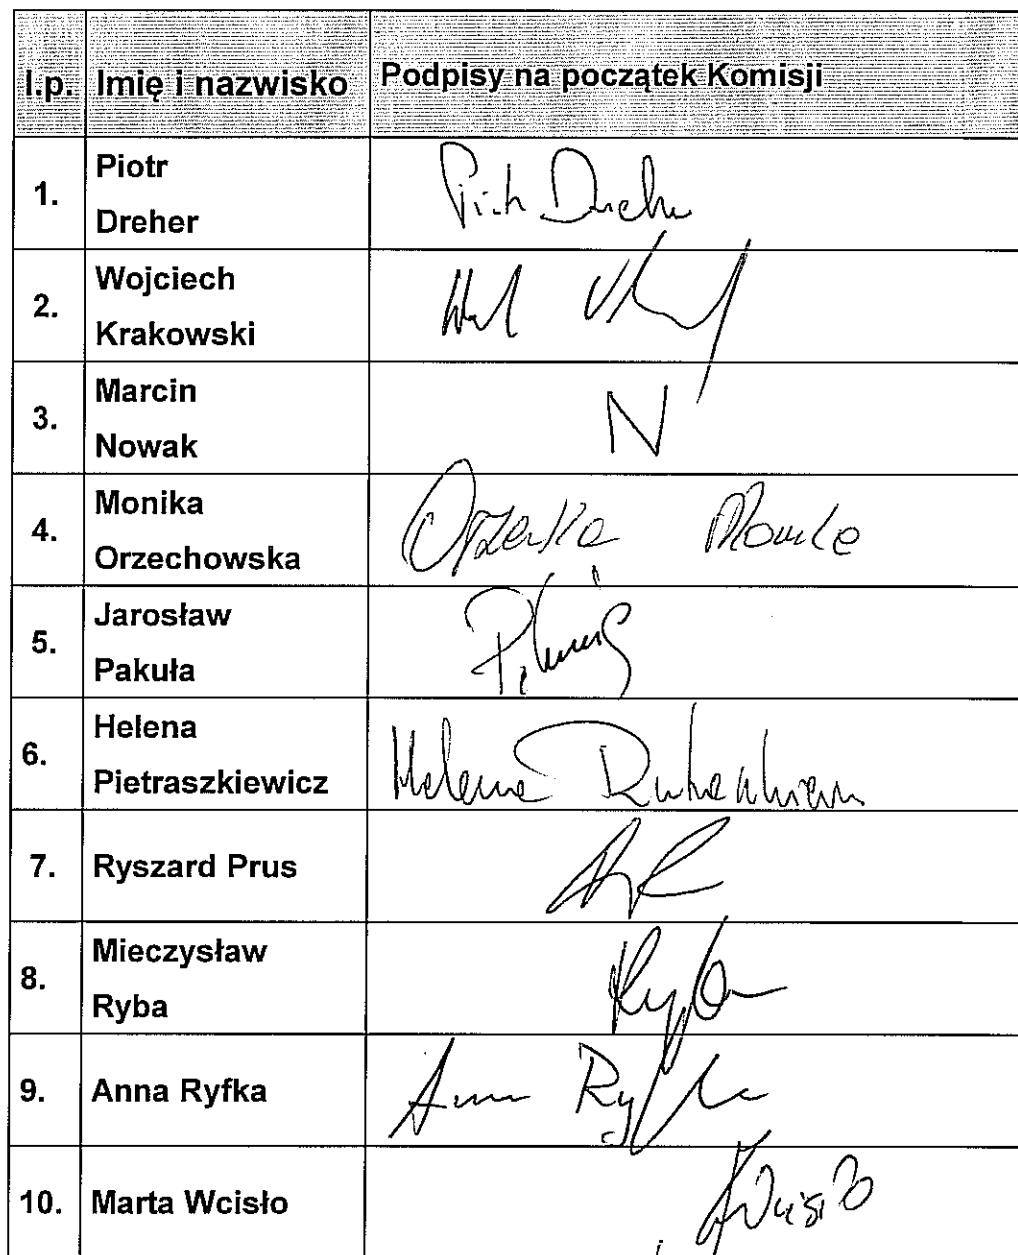 l.p. Imię i nazwisko Podpisy na początek Komisji
1. Piotr
Dreher
2. Wojciech
Krakowski
3. Marcin
Nowak
N
4. Monika
Orzechowska
5. Jarosław
Pakuła
6. Helena
Pietraszkiewicz
Helena
7. Ryszard Prus
8. Mieczysław
Ryba
Ryba
9. Anna Ryfka
Anna Ryfka
10. Marta Wcisło
Wcisło